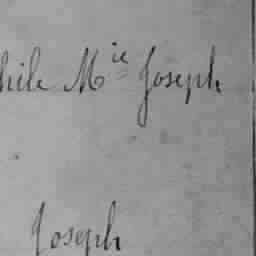 hile Mie Joseph
Joseph